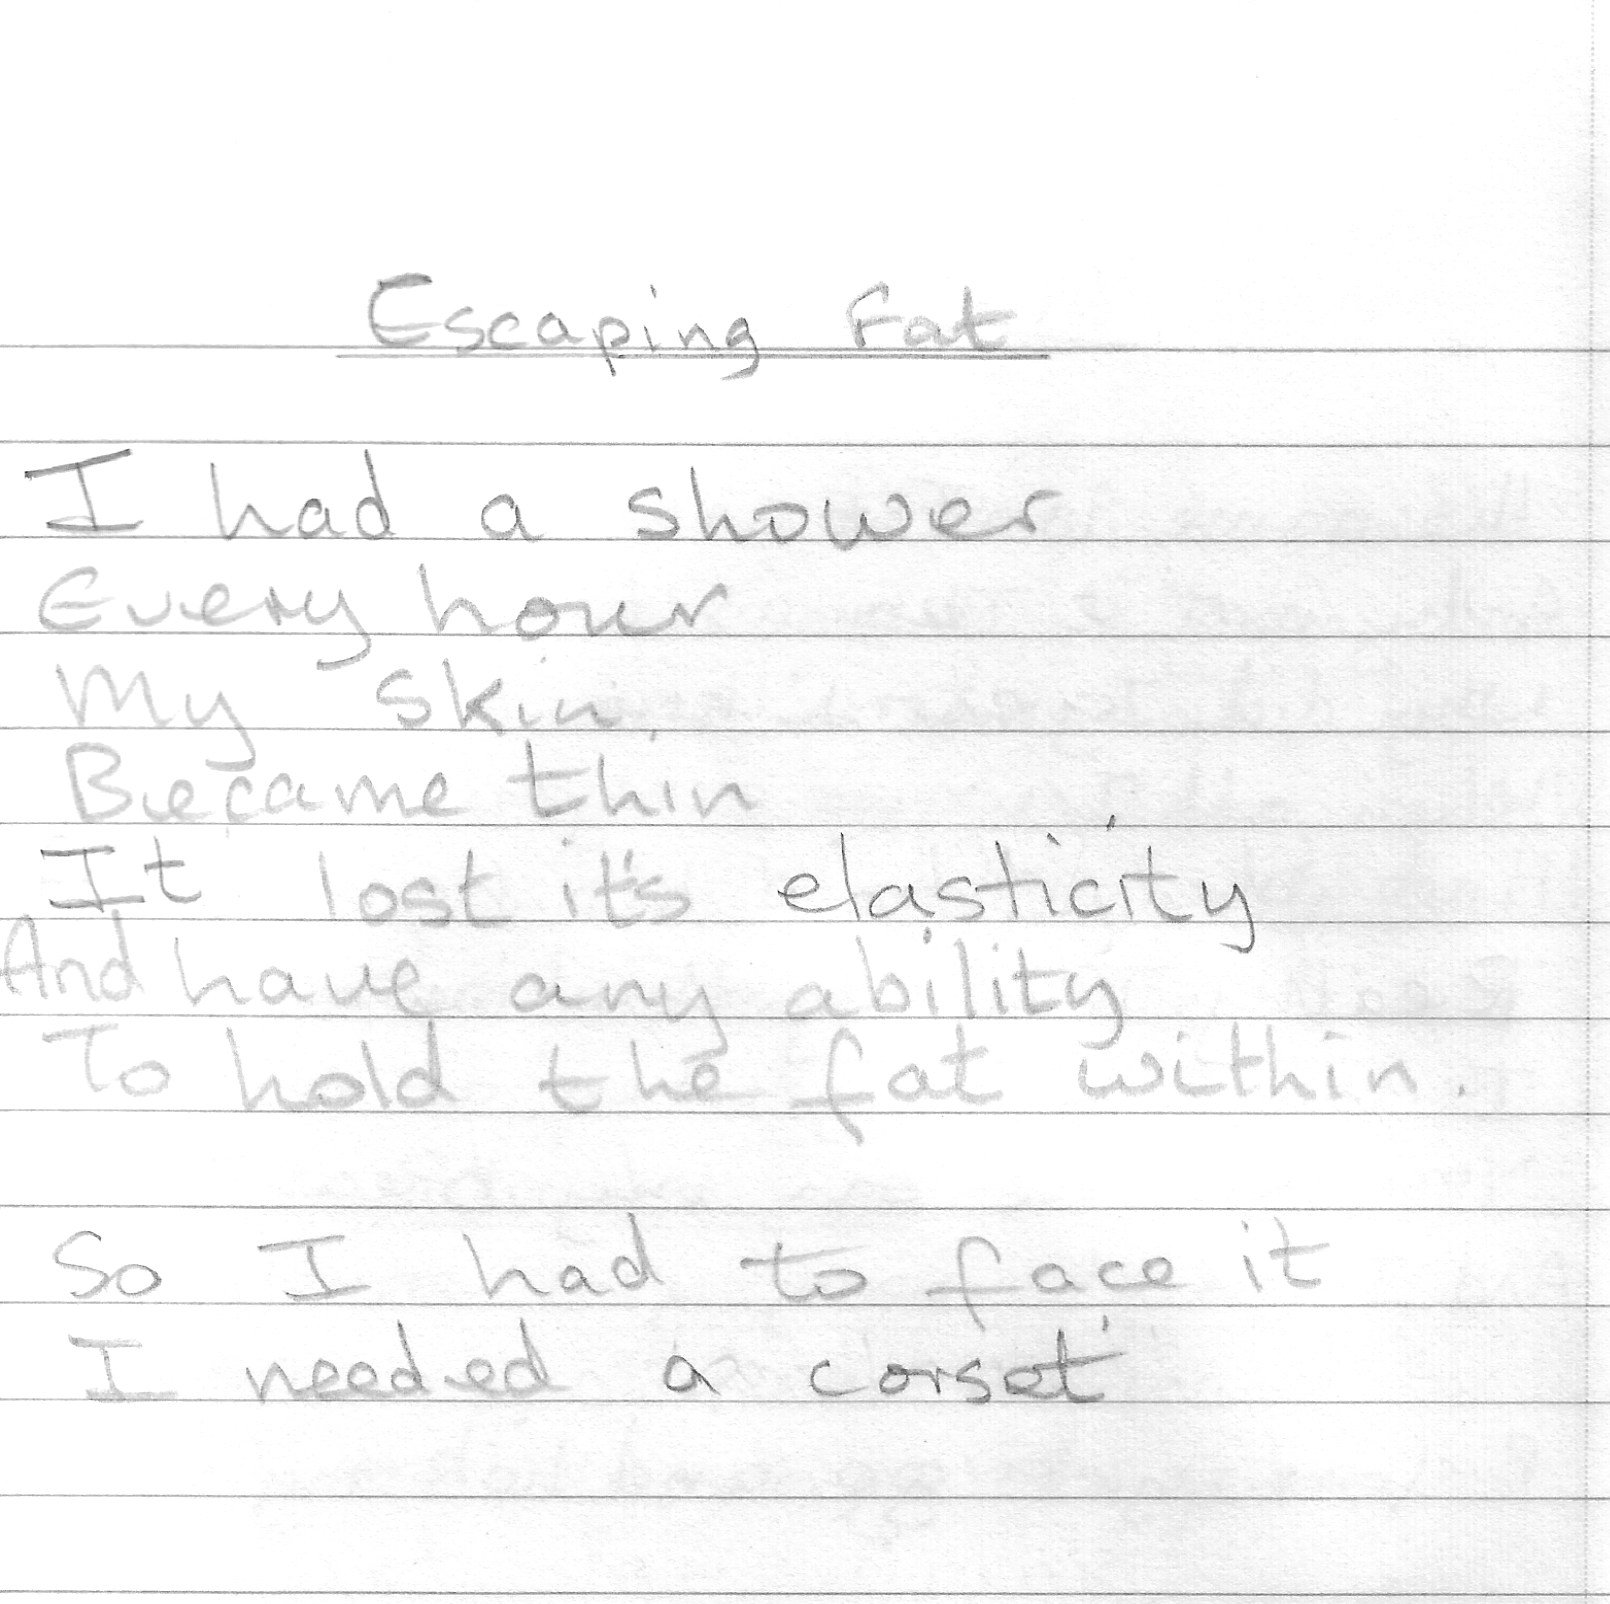 Escaping Fat
I had a shower
Every hour
My skin
Became thin
It lost it's elasticity
And have any ability
To hold the fat within.
So I had to face it
I needed a corset